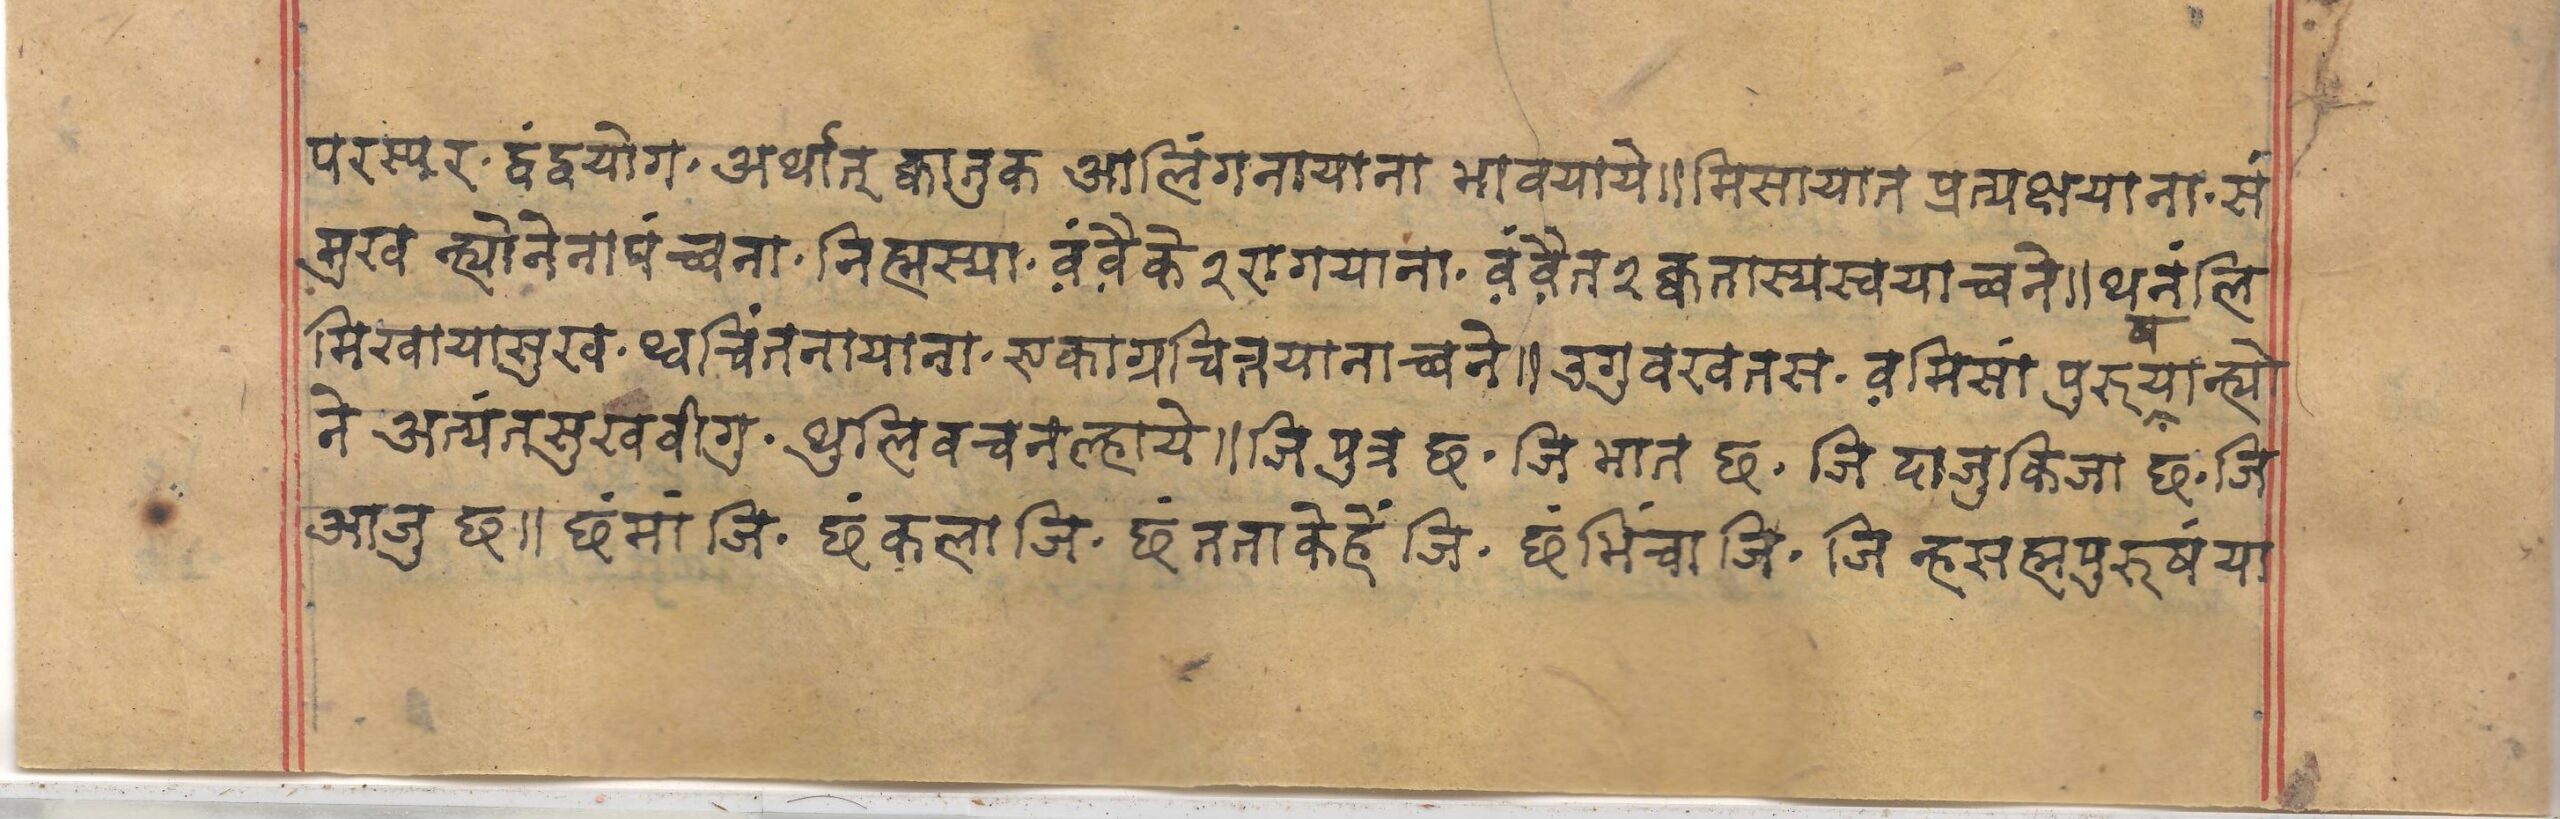 परस्पर· द्वंद्वयोग· अर्थात् क्वातुक आलिंगनायाना भावयाये॥ मिसायात प्रत्यक्षयाना· सं
मुख न्ह्योनेनापंच्वना· निह्मस्या· वं़वै़के२रागयाना· वं़वै़त२क्वतास्यस्वयाच्वने॥ थनंलि
मिखायासुख· थ्वचिंतनायाना· एकाग्रचित्तयानाच्वने॥ उगुवखतस· व़मिसां पुरुषयान्ह्यो
ने अत्यंतसुखवीगु· थुलिवचनल्हाये॥ जि पुत्र छ· जि भात छ· जि दाजुकिजा छ· जि
आजु छ॥ छंमां जि· छंकला जि· छंतताकेहें जि· छंभिंचा जि· जि न्हसह्मपुरुषंया